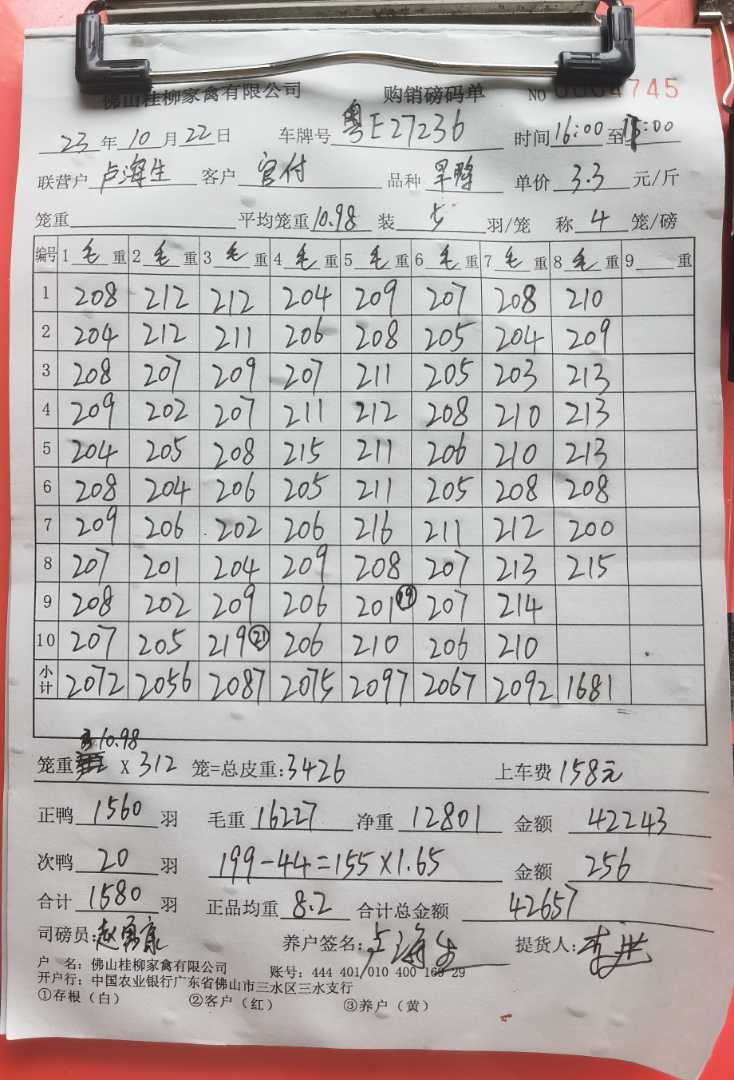 佛山桂柳家禽有限公司 购销磅码单 NO 0004745
23 年 10 月 22 日 车牌号 粤E27236 时间 16:00 至 :00
联营户 卢海生 客户 官付 品种 旱鸭 单价 3.3 元/斤
笼重 平均笼重 10.98 装 5 羽/笼 称 4 笼/磅
编号 1 毛 重 2 毛 重 3 毛 重 4 毛 重 5 毛 重 6 毛 重 7 毛 重 8 毛 重 9 重
1 208 212 212 204 209 207 208 210
2 204 212 211 206 208 205 204 209
3 208 207 209 207 211 205 203 213
4 209 202 207 211 212 208 210 213
5 204 205 208 215 211 206 210 213
6 208 204 206 205 211 205 208 208
7 209 206 202 206 216 211 212 200
8 207 201 204 209 208 207 213 215
9 208 202 209 206 201 19 207 214
10 207 205 219 21 206 210 206 210
小计 2072 2056 2087 2075 2097 2067 2092 1681
10.98
笼重 X 312 笼=总皮重:3426 上车费 158元
正鸭 1560 羽 毛重 16227 净重 12801 金额 42243
次鸭 20 羽 199-44=155×1.65 金额 256
合计 1580 羽 正品均重 8.2 合计总金额 42657
司磅员:赵勇康 养户签名:卢海生 提货人:
户 名: 佛山桂柳家禽有限公司 账号: 444 401/010 400 169 29
开户行: 中国农业银行广东省佛山市三水区三水支行
①存根(白) ②客户(红) ③养户(黄)